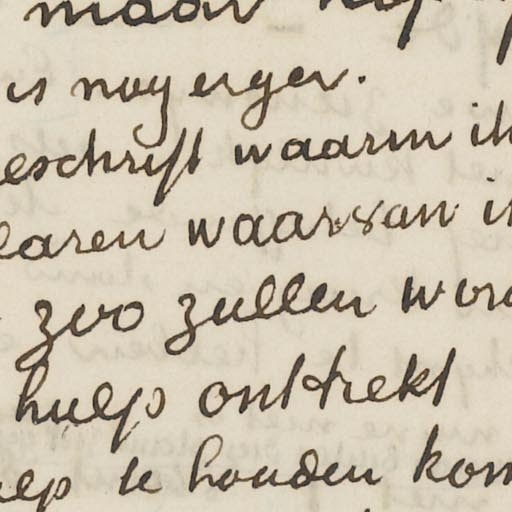 maar
is nog erger.
eschrift waarin ik
laren waarvan i
zoo zullen wor
hulp onttrekt
te houden kom